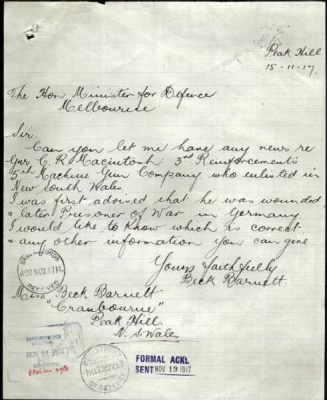 Peak Hill
15-11-17.
The Hon Minister for Defence
Melbourne
Sir
Can you let me have any news re
Gnr C. R. Macintosh 3rd Reinforcements
5th Machine Gun Company who enlisted in
New South Wales
I was first advised that he was wounded
& later Prisoner of War in Germany
I would like to know which is correct
& any other information you can give
Yours faithfully
Beck Barnett
Miss Beck Barnett
"Cranbourne"
Peak Hill.
N. S. Wales
FORMAL ACKL.
SENT NOV 19 1917